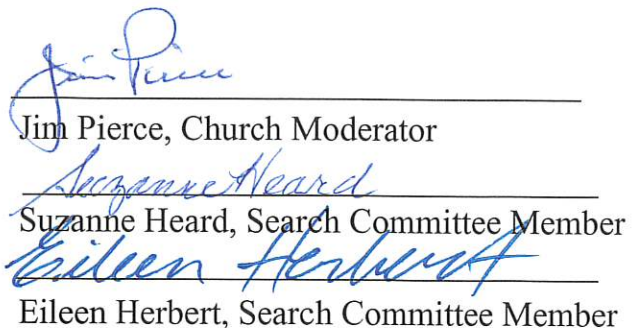 Jim Pierce
Jim Pierce, Church Moderator
Suzanne Heard
Suzanne Heard, Search Committee Member
Eileen Herbert
Eileen Herbert, Search Committee Member